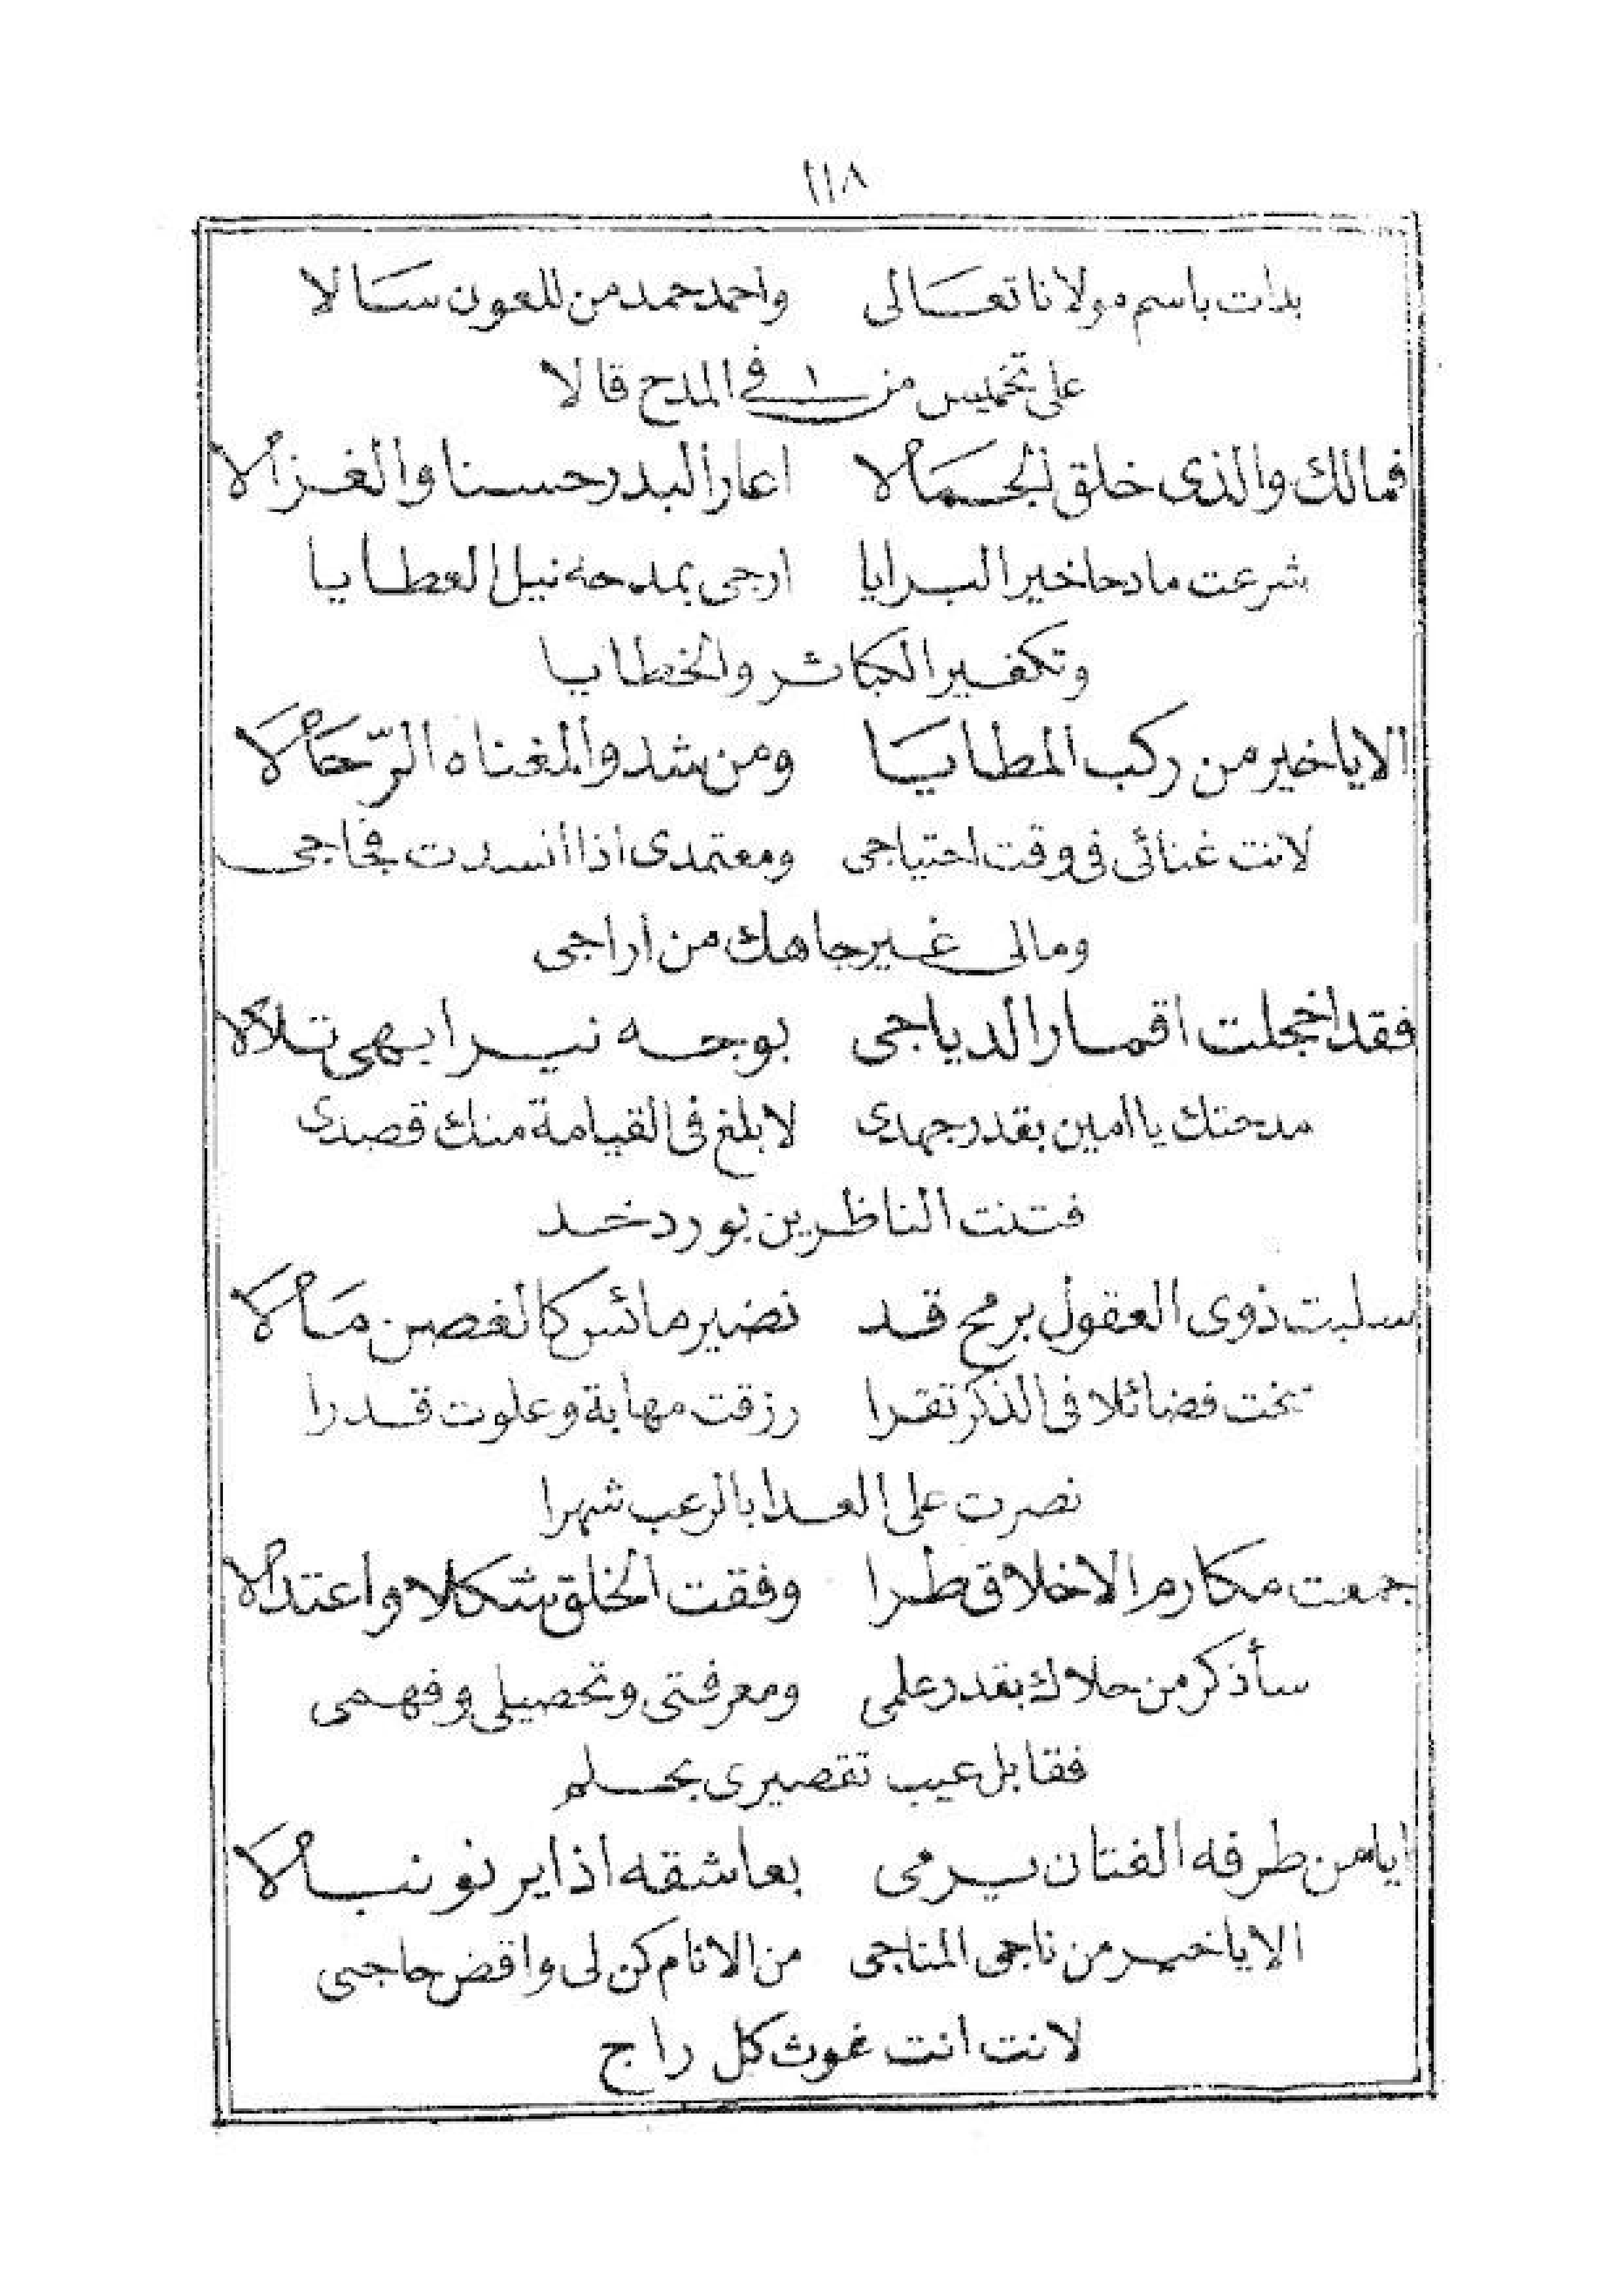 ١١٨
بدات باسم مولانا تعالى واحمد حمد من للعون سالا
على تخميس من ١ في المدح قالا
فمالك والذى خلق الجمالا اعار البدر حسنا والغزالا
شرعت مادحا خير البرايا ارجى بمدحه نيل العطايا
وتكفير الكبائر والخطايا
الا يا خير من ركب المطايا ومن شدوا لمغناه الرّحالا
لانت غنائى فى وقت احتياجى ومعتمدى اذا انسدت فجاجى
ومالى غير جاهك من اراجى
فقد اخجلت اقمار الدياجى بوجه نير ابهى تلألأ
مدحتك يا امين بقدر جهدى لابلغ فى القيامة منك قصدى
فتنت الناظرين بورد خد
سلبت ذوى العقول برمح قد نضير مائس كالغصن مالا
نخت فضائلا فى الذكر تقرا رزقت مهابة وعلوت قدرا
نصرت على العدا بالرعب شهرا
جمعت مكارم الاخلاق طرا وفقت الخلق شكلا واعتدالا
سأذكر من حلاك بقدر علمى ومعرفتى وتحصيلى وفهمى
فقابل عيب تقصيرى بحلم
ايا من طرفه الفتان يرمى بعاشقه اذا يرنو نبالا
الا يا خير من ناجى المناجى من الانام كن لى واقض حاجى
لانت انت غوث كل راج